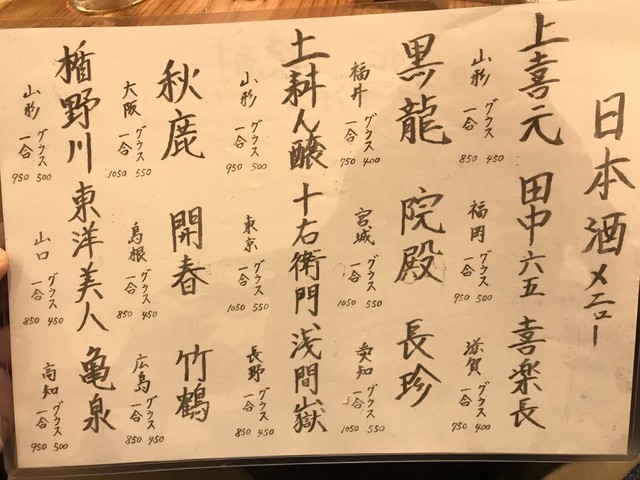 日本酒メニュー
上喜元
山形
グラス 450
一合 850
田中六五
福岡
グラス 500
一合 950
喜楽長
滋賀
グラス 400
一合 750
黒龍
福井
グラス 400
一合 750
院殿
宮城
グラス 550
一合 1050
長珍
愛知
グラス 550
一合 1050
土耕ん醸
山形
グラス 500
一合 950
十右衛門
東京
グラス 550
一合 1050
浅間嶽
長野
グラス 450
一合 850
秋鹿
大阪
グラス 550
一合 1050
開春
島根
グラス 450
一合 850
竹鶴
広島
グラス 450
一合 850
楯野川
山形
グラス 500
一合 950
東洋美人
山口
グラス 450
一合 850
亀泉
高知
グラス 500
一合 950